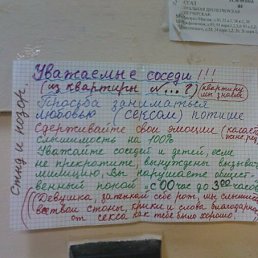 Уважаемые соседи!!!
(из квартиры №...?) (квартиру мы знаем)
Просьба заниматься
любовью (сексом) потише
Сдерживайте свои эмоции (
слышимость на 100%
Уважайте соседей и детей, если
не прекратите, вынуждены вызывать
милицию, вы нарушаете общест-
венный покой с 00 час до 3 00 часов
((Девушка, затыкай себе рот, мы слышим
все твои стоны, крики и слова благодарности
от секса как тебе было хорошо.
Стыд и позор.